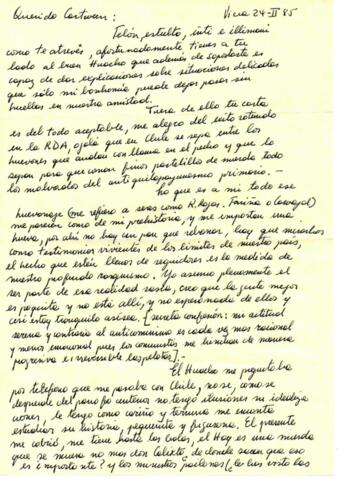 Querido Costuren: Viena 24-II 85
Telón, estulto, inti e illimani
como te atrevés, afortunadamente tienes a tu
lado al gran Huacho que además de
capaz de dar explicaciones sobre situaciones delicadas
que sólo mi bonhomía puede dejar pasar sin
huellas en nuestra amistad.
Fuera de ello tu carta
es del todo aceptable, me alegro del éxito rotundo
en la RDA, ojalá que en Chile se sepa entre los
huevones que andan con llama en el pecho y que lo
sepan para que coman finos pastelillos de mierda todo
los malvados del antiquilapayunismo primario.-
Lo que es a mi toda esa
huevonaje (me refiero a seres como R. Rojas. Fariña o Carvajal)
me parecen como de mi prehistoria, y me importan una
hueva, por ahí no hay en pan que rebanar, hay que mirarlos
como testimonios vivientes de los límites de nuestro país,
el hecho que estén llenos de seguidores es la medida de
nuestro profundo rasquismo. Yo asumo plenamente el
ser parte de esa realidad rasca, creo que la gente mejor
es poquita, y no está allí, y no espero nada de ellos y
así estoy tranquilo así sea. [secreta confesión: mi actitud
serena y contraria al anticomunismo es cada vez mas racional
y menos emocional pues los comunistas me hinchan de manera
progresiva e irreversible las pelotas].-
El Huacho me preguntaba
por teléfono que me pasaba con Chile, no se, como se
desprende del párrafo anterior no tengo ilusiones ni idealiza
ciones, le tengo como cariño y ternura me encanta
estudiar su historia, pequeñita y El presente
me cabrió, me tiene hasta las bolas, el Hoy es una mierda
que se mueva no mas don Calixto, de donde sacan que eso
es importante? y los minuetos (le has visto las